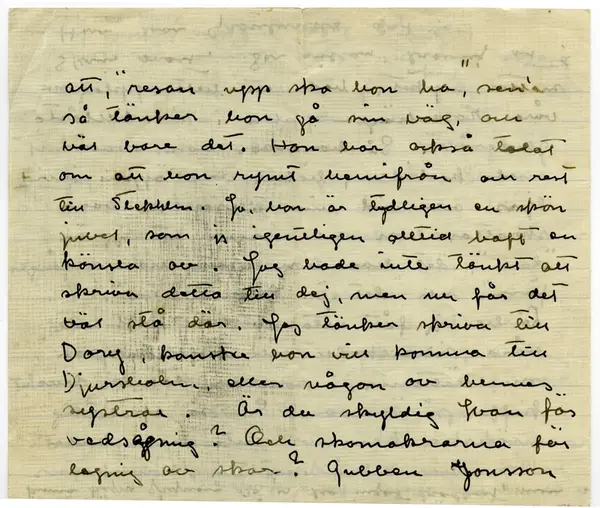 att, "resan upp ska hon ha", sen
så tänker hon gå sin väg, om
väl vore det. Hon har också talat
om att hon rymt hemifrån om rest
till Stockhlm. Ja, hon är tydligen en skön
juvel, som jg igentligen alltid haft en
känsla av. Jag hade inte tänkt att
skriva detta till dej, men nu får det
väl stå där. Jag tänker skriva till
Dory, kanske hon vill komma till
Djursholm, eller någon av hennes
systrar. Är du skyldig Ivan för
vedsågning? Och skomakrarna för
lagnig av skor? Gubben Jonsson